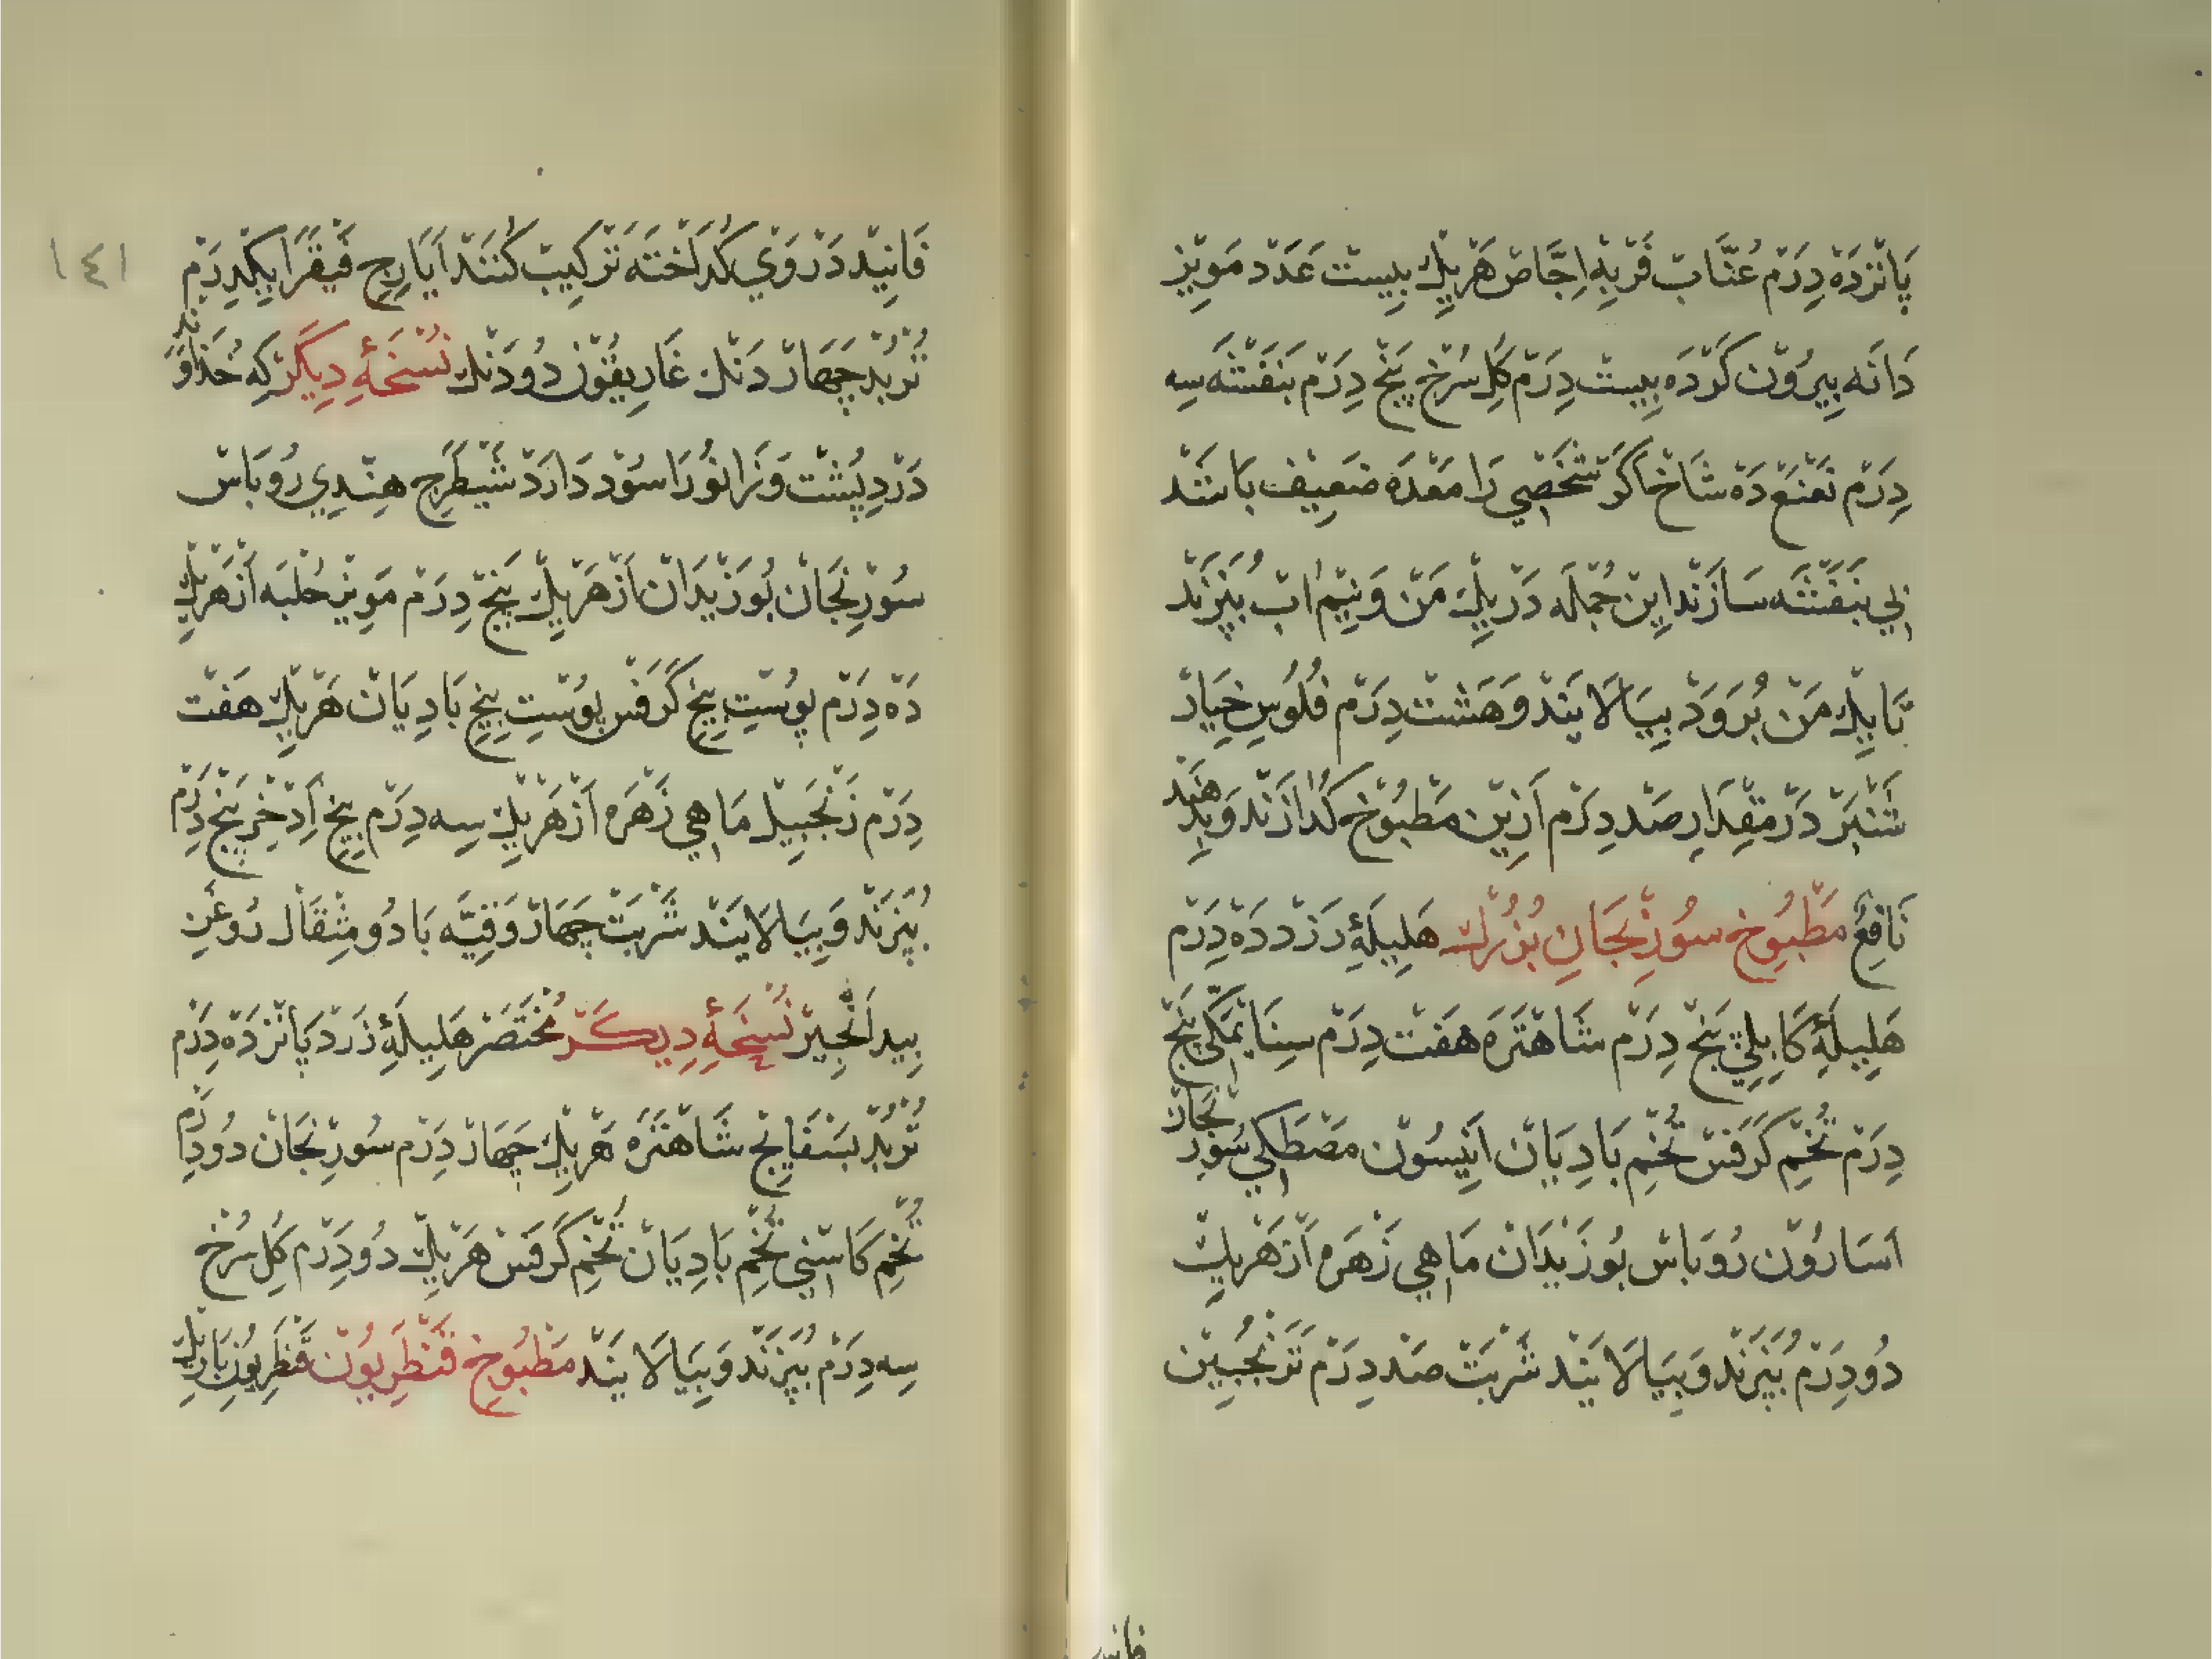 پَانْزدَهْ دِرَمْ عُنَّابْ فَرْبِهْ اِجَّاصْ هَرْيِكْ بِيسْت عَدَدْ مَوِيْز
دَانَه بِيرُوْن كَرْدَه بِيسْت دِرَمْ كُلِ سُرْخ پَنْج دِرَمْ بَنَفْشَه سِه
دِرَمْ نَعْنَعْ دَهْ شَاخْ اكَرْ شَخْصِي رَا مَعْدَه ضَعِيف بَاشَنْد
بِي بَنَفْشَه سَازَنْد اِيْن جُمْلَه دَرْ يِكْ مَنْ وَنِيْم اٰبْ بُپَزَنْد
تَا يِكْ مَنْ بُرَوَدْ بِيَالَايَنْد وَهَشْت دِرَمْ فُلُوسِ خِيَارْ
شَنْبَرْ دَرْ مِقْدَارِ صَدْ دِرَمْ اَزِيْن مَطْبُوْخ كُدَازَنْد وَبِدِهَنْد
نَافِعْ مَطْبُوخِ سُوْرِنْجَانِ بُزُرْك هَلِيلَهِٔ زَرْد دَهْ دِرَمْ
هَلِيلَهِٔ كَابِلِيْ پَنْج دِرَمْ شَاهْتَرَه هَفْت دِرَمْ سِنَاءِ مَكِّي پَنْج
دِرَمْ تُخْمِ كَرَفْس تُخْمِ بَادِيَانْ اَنِيسُوْن مَصْطَكِي سُوْرِنْجَانْ
اَسَارُوْن رُوبَاسْ بُوزَيْدَانْ مَاهِي زَهْرَه اَزْهَرْيِكْ
دُودِرَمْ بُپَزَنْد وَبِيَالَايَنْد شَرْبَتْ صَدْ دِرَمْ تَرَنْجُبِيْن
فانيد
١٤١
فَانِيْد دَرْوَيْ كُدَاخْتَه تَرْكِيبْ كُنَنْد اَيَارِجِ فَيْقَرَا يِكْدِرَمْ
تُرْبُدْ چَهَارْ دَنْك غَارِيقُوْن دُودَنْك نُسْخَهِٔ دِيكَرْ كِه خُدَاوَنْدِ
دَرْدِ پُشْت وَزَانُوْ رَا سُوْد دَارَدْ شَيْطَرَجِ هِنْدِي رُوبَاسْ
سُوْرِنْجَانْ بُوزَيْدَانْ اَزْهَرْيِكْ پَنْج دِرَمْ مَوِيْز حُلْبَه اَزْهَرْيِكْ
دَهْ دِرَمْ پُوسْتِ بِيْخِ كَرَفْس پُوسْتِ بِيْخِ بَادِيَانْ هَرْيِكْ هَفْت
دِرَمْ زَنْجَبِيْل مَاهِي زَهْرَه اَزْهَرْيِكْ سِه دِرَمْ بِيْخِ اِذْخِرْ پَنْج دِرَمْ
بُپَزَنْد وَبِيَالَايَنْد شَرْبَتْ چَهَارْ وَقِيَّه بَا دُو مِثْقَالْ رُوغَنِ
بِيد اَنْجِيْر نُسْخَهِٔ دِيكَرْ مُخْتَصَرْ هَلِيلَهِٔ زَرْد پَانْزدَهْ دِرَمْ
تُرْبُدْ بَسْفَايِج شَاهْتَرَه هَرْيِكْ چَهَارْ دِرَمْ سُوْرِنْجَانْ دُودِرَمْ
تُخْمِ كَاسْنِي تُخْمِ بَادِيَانْ تُخْمِ كَرَفْس هَرْيِكْ دُودِرَمْ كُلِ سُرْخ
سِه دِرَمْ بُپَزَنْد وَبِيَالَايَنْد مَطْبُوخِ قَنْطَرِيُوْن قَنْطَرِيُوْن بَارِيكْ